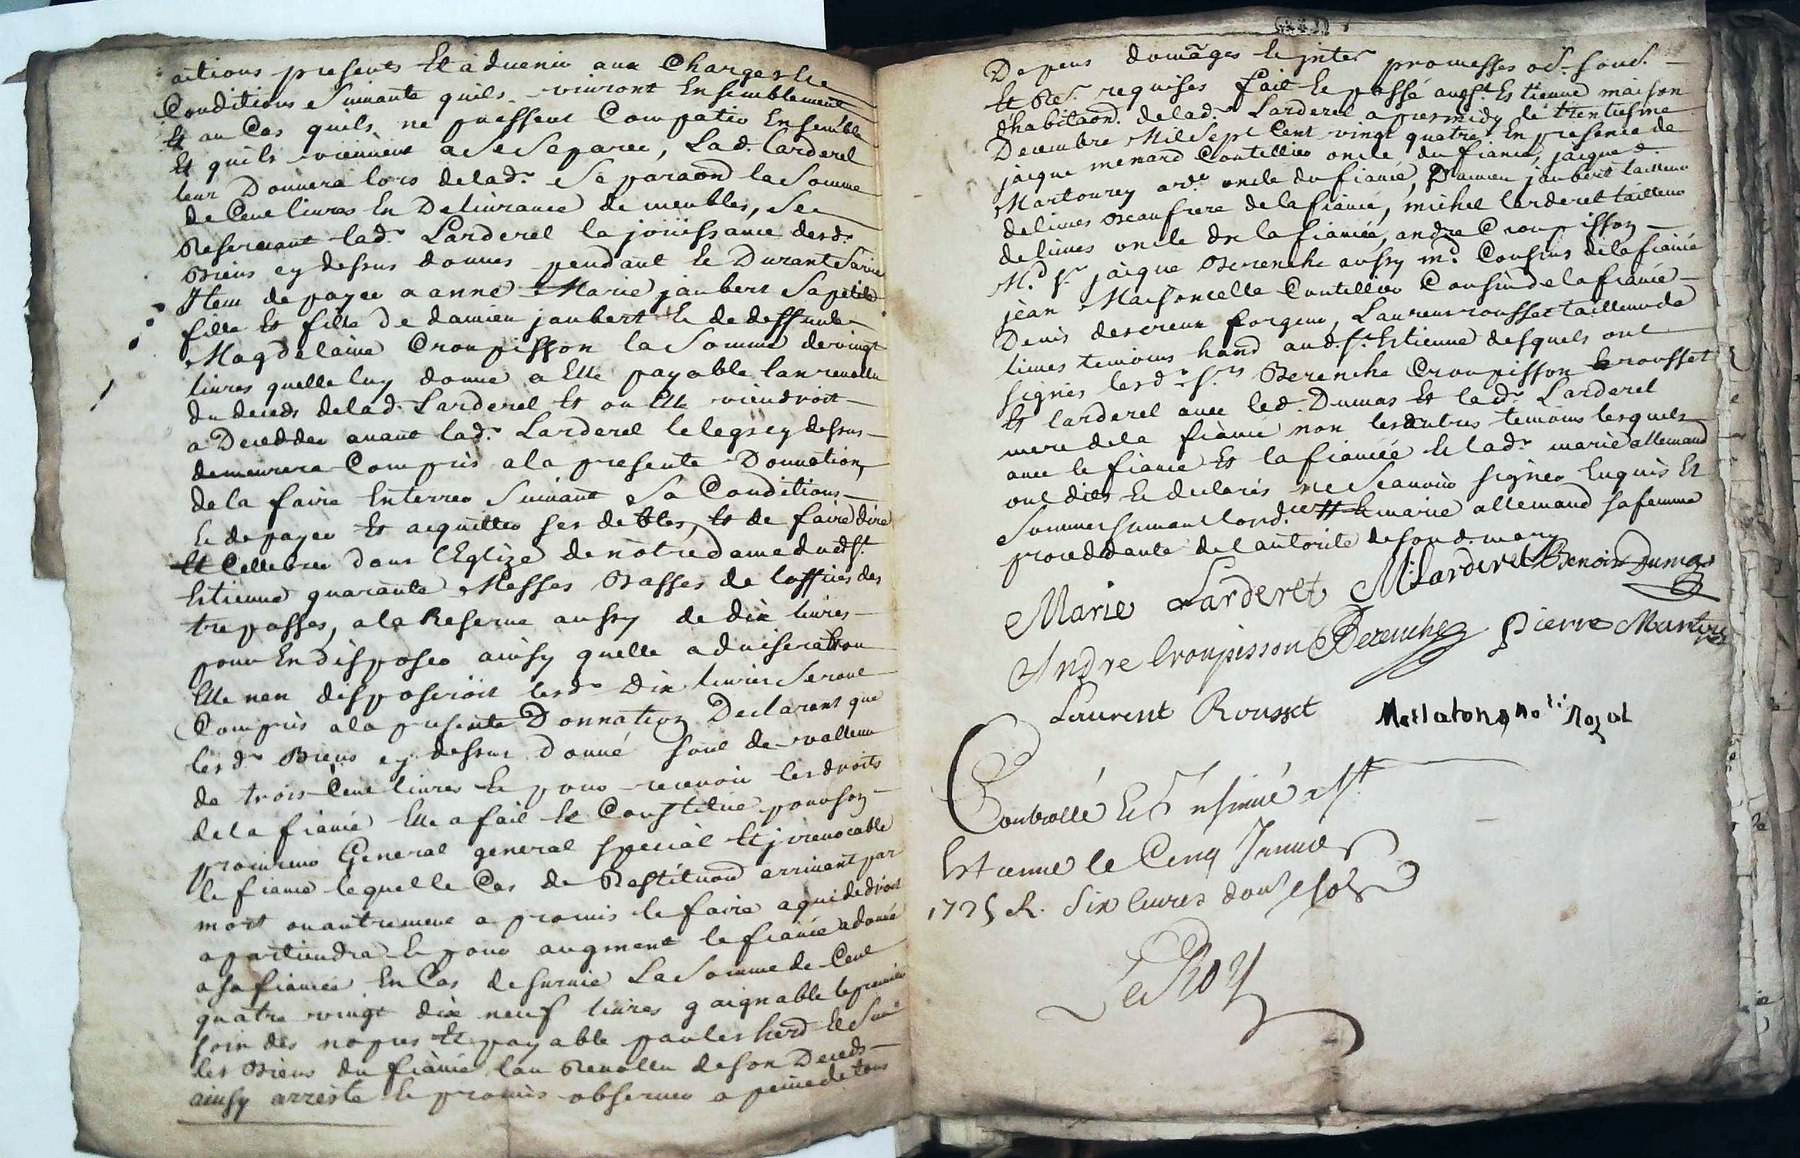 actions presents Et a Advenir aux Charges Ee
Conditions Suivante quils vivront Ensemblement
Et au Cas quils ne puessent Compatir Ensemble
Et quils viennent a Se Separer, Lad. Larderel
leur Donnera lors delad.e Separaon la Somme
de Cent livres En Delivrance de meubles, Se
Reservant lad.e Larderel la jouissance desd.
Biens cy dessus donnes pendant Ee Durant Sa vie
Item de payer a anne Marie jaubert Sa petite
fille Et fille de damien jaubert Ee de deffunte
Magdelaine Croupisson la Somme de vingt
livres quelle luy donne a Elle payable lan revollu
du deceds delad. Larderel Et ou Elle viendroit
a Decedder avant lad.e Larderel le legs cy dessus
demeurera Compris a la presente Donnation,
de la faire Enterrer Suivant Sa Conditions
Ee de payer Et acquitter ses debtes, Et de faire dire
Et Cellebrer dans l'Eglize de notre dame dud St.
Estienne quarante Messes Basses de l'office des
trepasses, a la Reserve aussy de dix livres
pour En disposer ainsy quelle advisera ou
Elle nen disposeroit lesd. Dix livres Seront
Compris a la presente Donnation Declarant que
lesd. Biens cy dessus donné sont de valleur
de trois Cent livres Ee pour recevoir les droits
de la fiancé Elle a fait Ee Constitué pour son
procureur General general special Et jrrevocable
le fiancé lequel le Cas de Restituon arrivant par
mort ou autrement a promis le faire a qui de droit
apartiendra Ee pour augment le fiancé a donné
a sa fiancée En Cas de survie La Somme de Cent
quatre vingt dix neuf livres gaignable le premier
soir des nopces Et payable par les herd Ee Sur
les Biens du fiancé lan Revollu de son Deceds
ainsy arresté Ee promis observer a peine de tous
Depens domages Ee jnter. promesses
Et Re. requises fait Ee passé aud St. Estienne maison
dhabitaon delad. Larderel apres midy le trentiesme
Decembre Mil Sept Cent vingt quatre En presence de
jacque menard Coutellier oncle du fiancé, jacque
Martourey oncle du fiancé, Damien jaubert tailleur
de limes Beaufrere de la fiancé, michel larderet tailleur
de limes oncle de la fiancée, andre Croupisson
M.d Sr. jacque Berenche aussy m.d Cousins de la fiancé
jean Maisoncelle Coutellier Cousin de la fiancé
Denis forgeur, Laurent rousset tailleur de
limes temoins aud. St. Estienne desquels ont
signés lesd. Srs Berenche Croupisson Ee rousset
Et larderel avec led. Dumas Et lad.e Larderel
mere de la fiancé non les autres temoins lesquels
avec le fiancé Et la fiancée Ee lad.e marie allemand
ont dits Ee declarés ne Scavoir signer Enquis Et
Sommes suivant lord.ce marie allemand sa femme
proceddante de l'autorité de son d. mary
Marie Larderet M. Larderet Benoit Dumas
Andre Croupisson Berenche pierre
Laurent Rousset
Controllé Et Insinué a St.
Estienne le Cinq Janvier
1725 R. Six livres douze sols
Le Roy